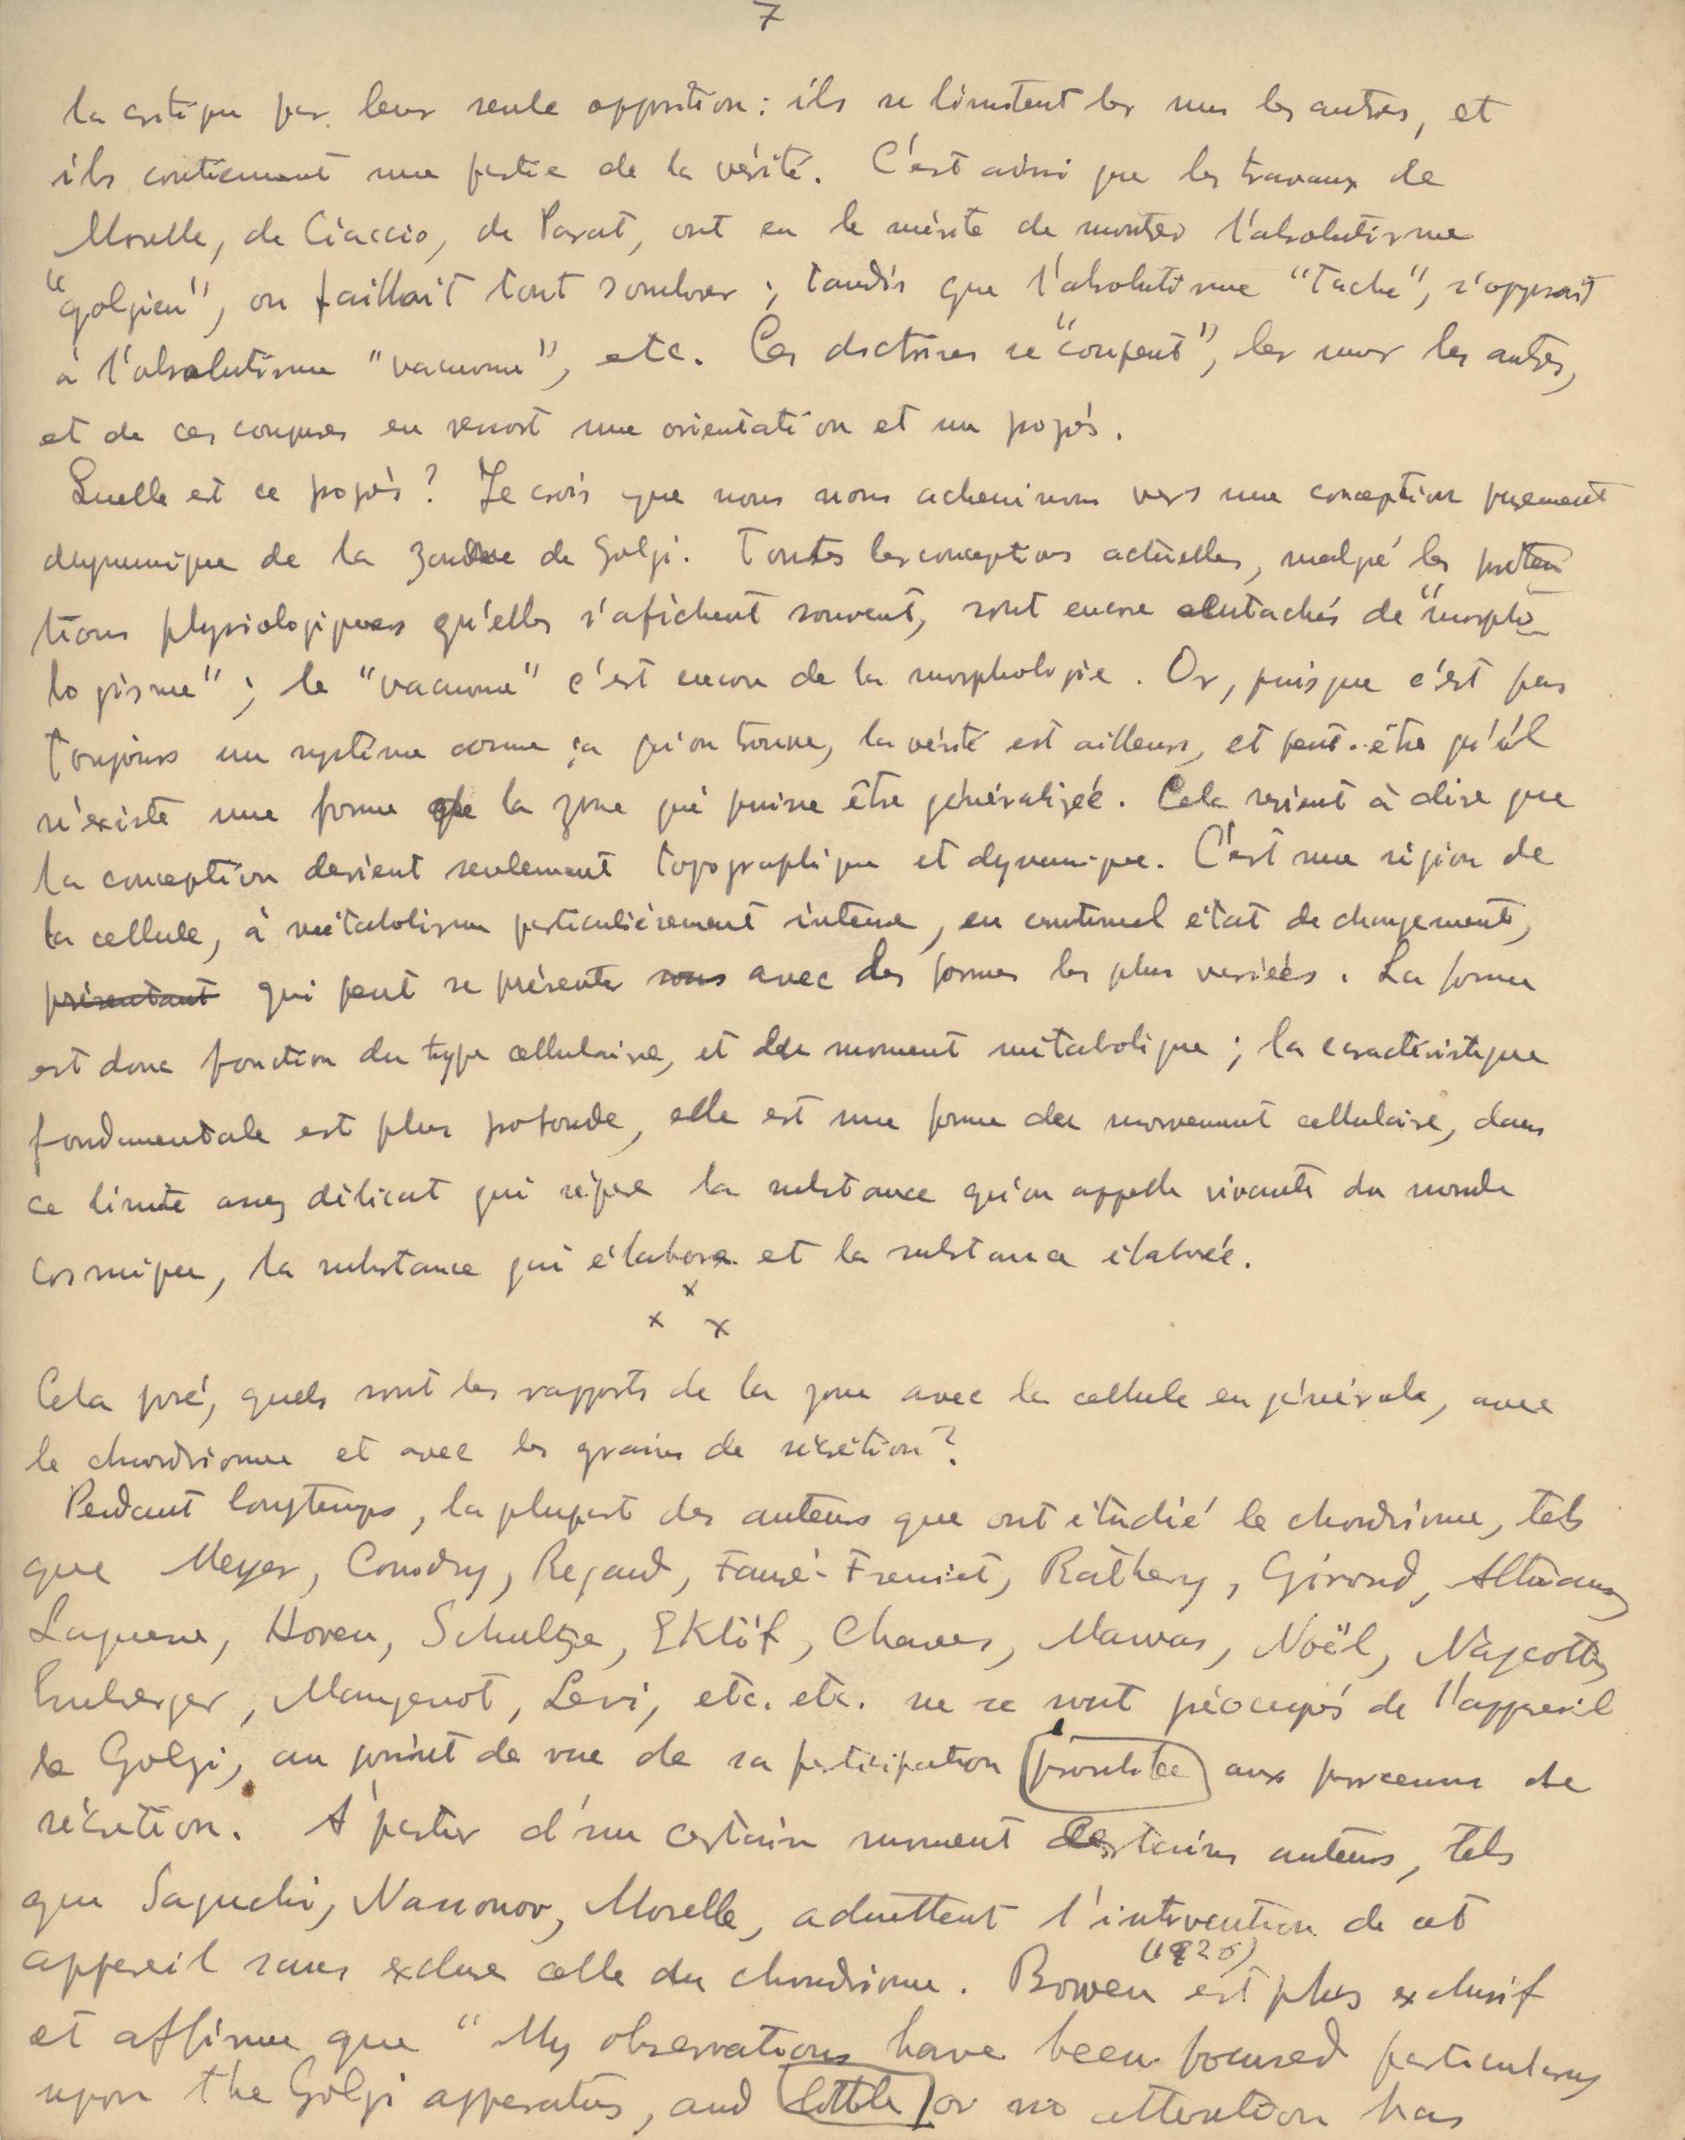 7
la critique par leur seule opposition: ils se limitent les uns les autres, et
ils contiennent une partie de la vérité. C'est ainsi que les travaux de
Morelle, de Ciaccio, de Parat, ont eu le mérite de montrer l'absolutisme
"golgien", ou faillait tout sombrer; tandis que l'absolutisme "tache", s'opposait
à l'absolutisme "vacuome", etc. Ces doctrines se "coupent", les unes les autres,
et de ces coupures en ressort une orientation et un progrès.
Quelle est ce progrès? Je crois que nous nous acheminons vers une conception purement
dynamique de la zone de Golgi. Toutes les conceptions actuelles, malgré les préten
tions physiologiques qu'elles s'afichent souvent, sont encore entachés de "morpho-
logisme"; le "vacuome" c'est encore de la morphologie. Or, puisque c'est pas
toujours un système comme ça qu'on trouve, la vérité est ailleurs, et peut-être qu'il
n'existe une forme de la zone qui puisse être généralizée. Cela revient à dire que
la conception devient seulement topographique et dynamique. C'est une région de
la cellule, à métabolisme particulièrement intense, en continuel état de changement,
présentant qui peut se présenter sous avec des formes les plus variées. La forme
est donc fonction du type cellulaire, et du moment métabolique; la caractéristique
fondamentale est plus profonde, elle est une forme du mouvement cellulaire, dans
ce limite assez délicat qui sépare la substance qu'on appelle vivante du monde
cosmique, la substance qui élabore et la substance élaborée.
x
x x
Cela posé, quels sont les rapports de la zone avec la cellule en générale, avec
le chondriome et avec les grains de sécrétion?
Pendant longtemps, la plupart des auteurs que ont étudié le chondriome, tels
que Meyer, Cowdry, Regaud, Fauré-Fremiet, Rathery, Giroud, Altmann,
Laguesse, Hoven, Schultze, Eklöf, Chaves, Mawas, Noël, Nageotte,
Emberger, Mangenot, Levi, etc. etc. ne se sont préocupés de l'appareil
de Golgi, au point de vue de sa participation possible aux processus de
sécrétion. A partir d'un certain moment certains auteurs, tels
que Saguchi, Nassonov, Morelle, admettent l'intervention de cet
appareil sans exclure celle du chondriome. Bowen (1926) est plus exclusif
et affirme que "My observations have been focused particularly
upon the Golgi apparatus, and little or no attention has